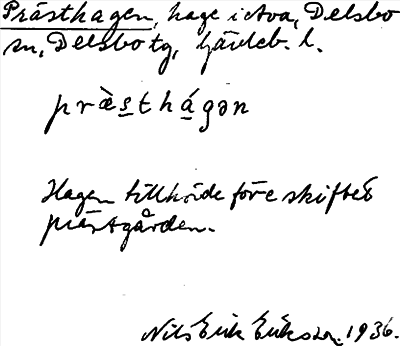 Prästhagen, hage i Ava, Delsbo
sn, Delsbo tg, Gävleb. l.
præ̀s̲thág̲ən
Hagen tillhörde före skiftet
prästgården.
Nils Erik Eriksson. 1936.